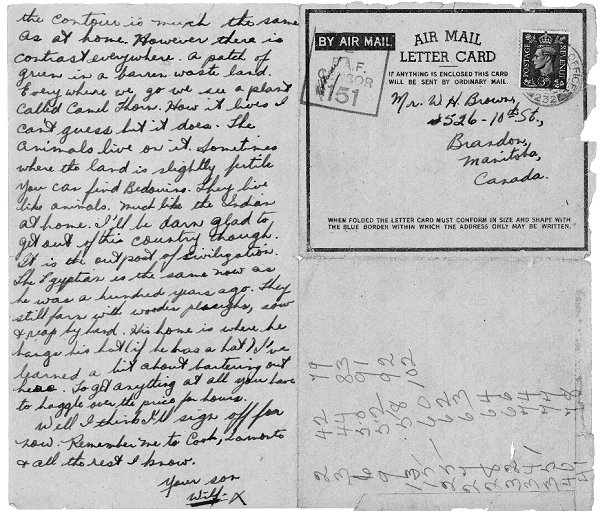 the contour is much the same
as at home. However there is
contrast everywhere. A patch of
green in a barren waste land.
Everywhere we go we see a plant
called Camel Thorn. How it lives I
can't guess but it does. The
animals live on it. Sometimes
where the land is slightly fertile
you can find Bedouins. They live
like animals. Much like the Indian
at home. I'll be darn glad to
get out of this country though.
It is the outpost of civilization.
The Egyptian is the same now as
he was a hundred years ago. They
still farm with wooden ploughs, sow
& reap by hand. His home is where he
hangs his hat (if he has a hat) I've
learned a bit about bartering out
here. To get anything at all you have
to haggle over the price for hours.
Well I think I'll sign off for
now. Remember me to Cook,
& all the rest I know.
Your son
Wilf. X
BY AIR MAIL
AIR MAIL
LETTER CARD
IF ANYTHING IS ENCLOSED THIS CARD
WILL BE SENT BY ORDINARY MAIL.
R.A.F.
CENSOR
151
POSTAGE
REVENUE
3D
Mr. W H Brown,
526-10th St.,
Brandon,
Manitoba,
Canada.
WHEN FOLDED THE LETTER CARD MUST CONFORM IN SIZE AND SHAPE WITH
THE BLUE BORDER WITHIN WHICH THE ADDRESS ONLY MAY BE WRITTEN.
2 42 79
3 44 83
6 91
9 58 92
60 102
623